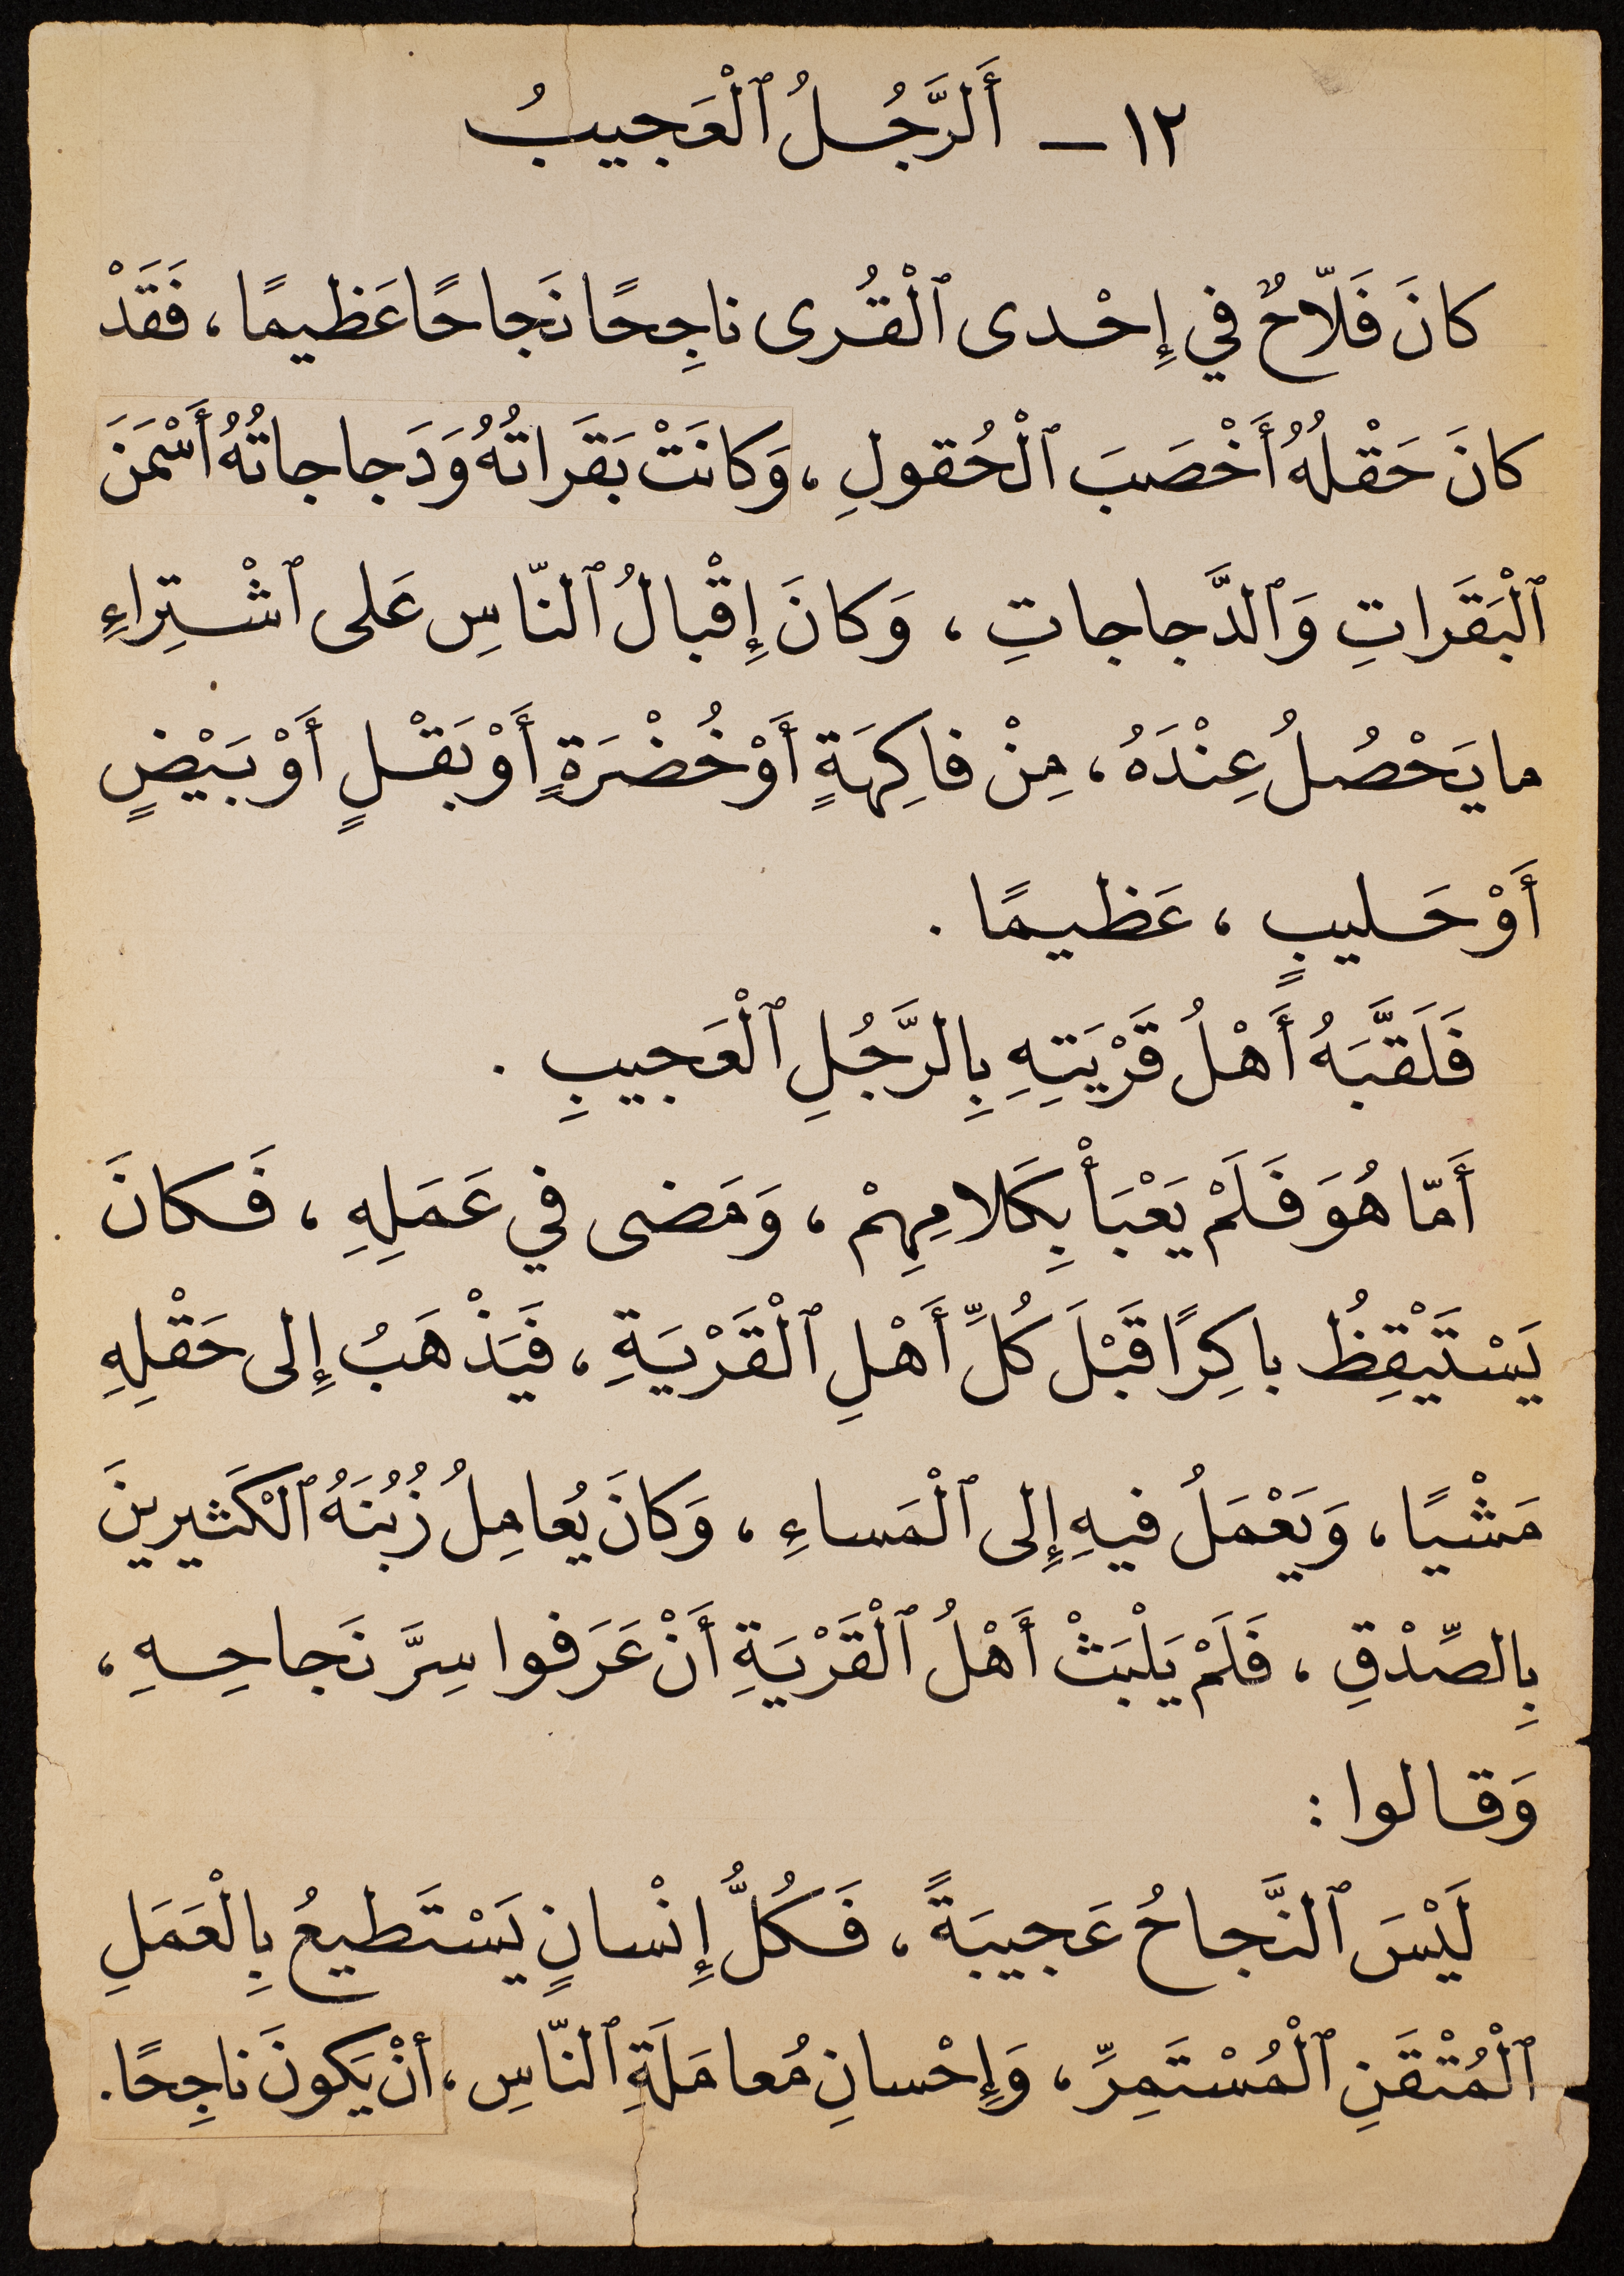 ١٢ – أَلرَّجُلُ ٱلْعَجيبُ
كانَ فَلّاحٌ في إِحْدى ٱلْقُرى ناجِحًا نَجاحًا عَظيمًا، فَقَدْ
كانَ حَقْلُهُ أَخْصَبَ ٱلْحُقولِ، وَكانَتْ بَقَراتُهُ وَدَجاجاتُهُ أَسْمَنَ
ٱلْبَقَراتِ وَٱلدَّجاجاتِ، وَكانَ إِقْبالُ ٱلنّاسِ عَلى ٱشْتِراءِ
ما يَحْصُلُ عِنْدَهُ، مِنْ فاكِهَةٍ أَوْ خُضْرَةٍ أَوْ بَقْلٍ أَوْ بَيْضٍ
أَوْ حَليبٍ، عَظيمًا.
فَلَقَّبَهُ أَهْلُ قَرْيَتِهِ بِالرَّجُلِ ٱلْعَجيبِ.
أَمّا هُوَ فَلَمْ يَعْبَأْ بِكَلامِهِمْ، وَمَضى في عَمَلِهِ، فَكانَ
يَسْتَيْقِظُ باكِرًا قَبْلَ كُلِّ أَهْلِ ٱلْقَرْيَةِ، فَيَذْهَبُ إِلى حَقْلِهِ
مَشْيًا، وَيَعْمَلُ فيهِ إِلى ٱلْمَساءِ، وَكانَ يُعامِلُ زُبُنَهُ ٱلْكَثيرينَ
بِالصِّدْقِ، فَلَمْ يَلْبَثْ أَهْلُ ٱلْقَرْيَةِ أَنْ عَرَفوا سِرَّ نَجاحِهِ،
وَقالوا:
لَيْسَ ٱلنَّجاحُ عَجيبَةً، فَكُلُّ إِنْسانٍ يَسْتَطيعُ بِالْعَمَلِ
ٱلْمُتْقَنِ ٱلْمُسْتَمِرِّ، وَإِحْسانِ مُعامَلَةِ ٱلنّاسِ، أَنْ يَكونَ ناجِحًا.